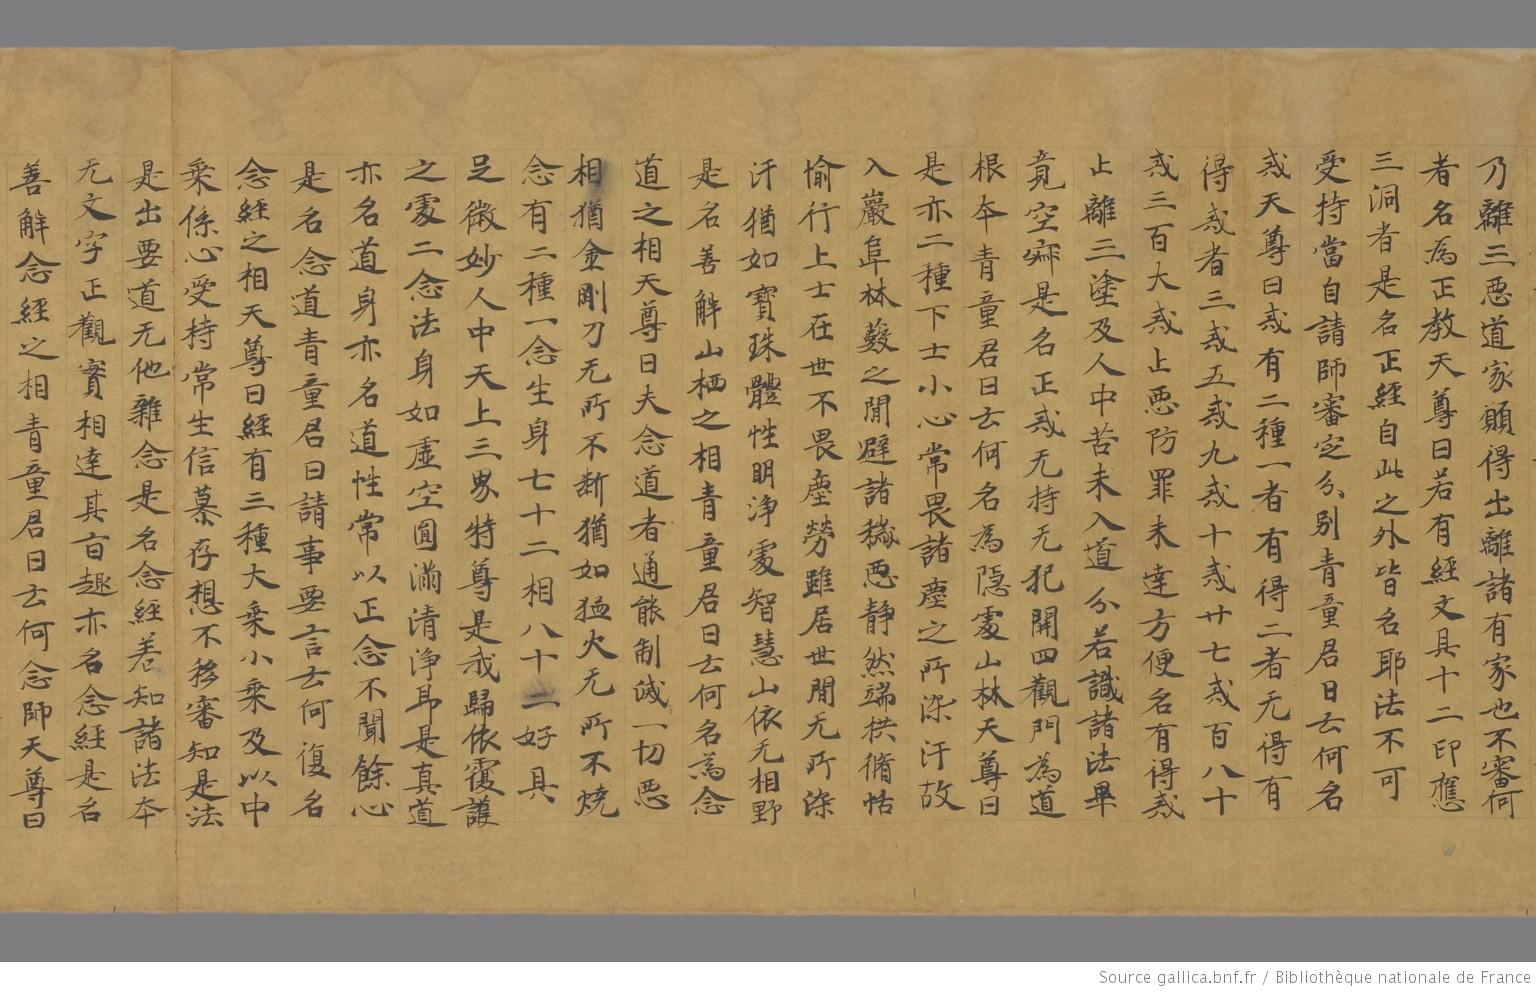 乃離三惡道家願得出離諸有家也不審何
者名為正教天尊曰若有經文具十二印應
三洞者是名正經自此之外皆名耶法不可
受持當自請師審定分别青童君曰云何名
戒天尊曰戒有二種一者有得二者无得有
得戒者三戒五戒九戒十戒廿七戒百八十
戒三百大戒止惡防罪未達方便名有得戒
止離三塗及人中苦未入道分若識諸法畢
竟空寂是名正戒无持无犯開四觀門為道
根本青童君曰云何名為隱處山林天尊曰
是亦二種下士小心常畏諸塵之所染汙故
入巖阜林藪之間避諸穢惡静然端拱脩恬
愉行上士在世不畏塵勞雖居世間无所染
汙猶如寶珠體性明浄處智慧山依无相野
是名善解山栖之相青童君曰云何名為念
道之相天尊曰夫念道者通能制滅一切惡
相猶金剛刀无所不断猶如猛火无所不燒
念有二種一念生身七十二相八十二好具
足微妙人中天上三界特尊是我歸依覆護
之處二念法身如虛空圓滿清浄即是真道
亦名道身亦名道性常以正念不聞餘心
是名念道青童君曰請事要言云何復名
念經之相天尊曰經有三種大乘小乘及以中
乘係心受持常生信慕存想不移審知是法
是出要道无他雜念是名念經善知諸法本
无文字正觀實相達其旨趣亦名念經是名
善解念經之相青童君曰云何念師天尊曰
Source gallica.bnf.fr / Bibliothèque nationale de France